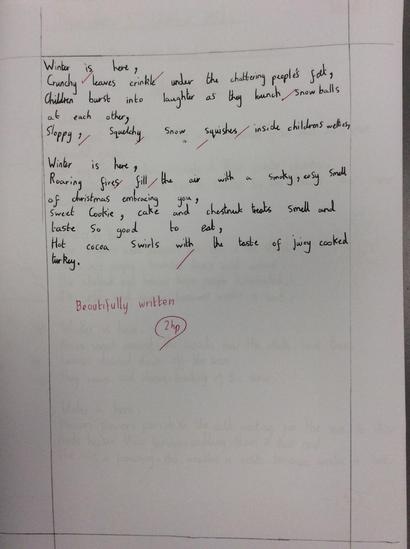 Winter is here,
Crunchy leaves crinkle under the chattering people's feet,
Children burst into laughter as they hunch snow balls
at each other,
Sloppy, Squelchy Snow squishes inside childrens wellies,
Winter is here,
Roaring fires fill the air with a smoky, cosy smell
of christmas embracing you,
Sweet Cookie, cake and chestnut treats smell and
taste so good to eat,
Hot cocoa swirls with the taste of juicy cooked
turkey.
Beautifully written
2hp